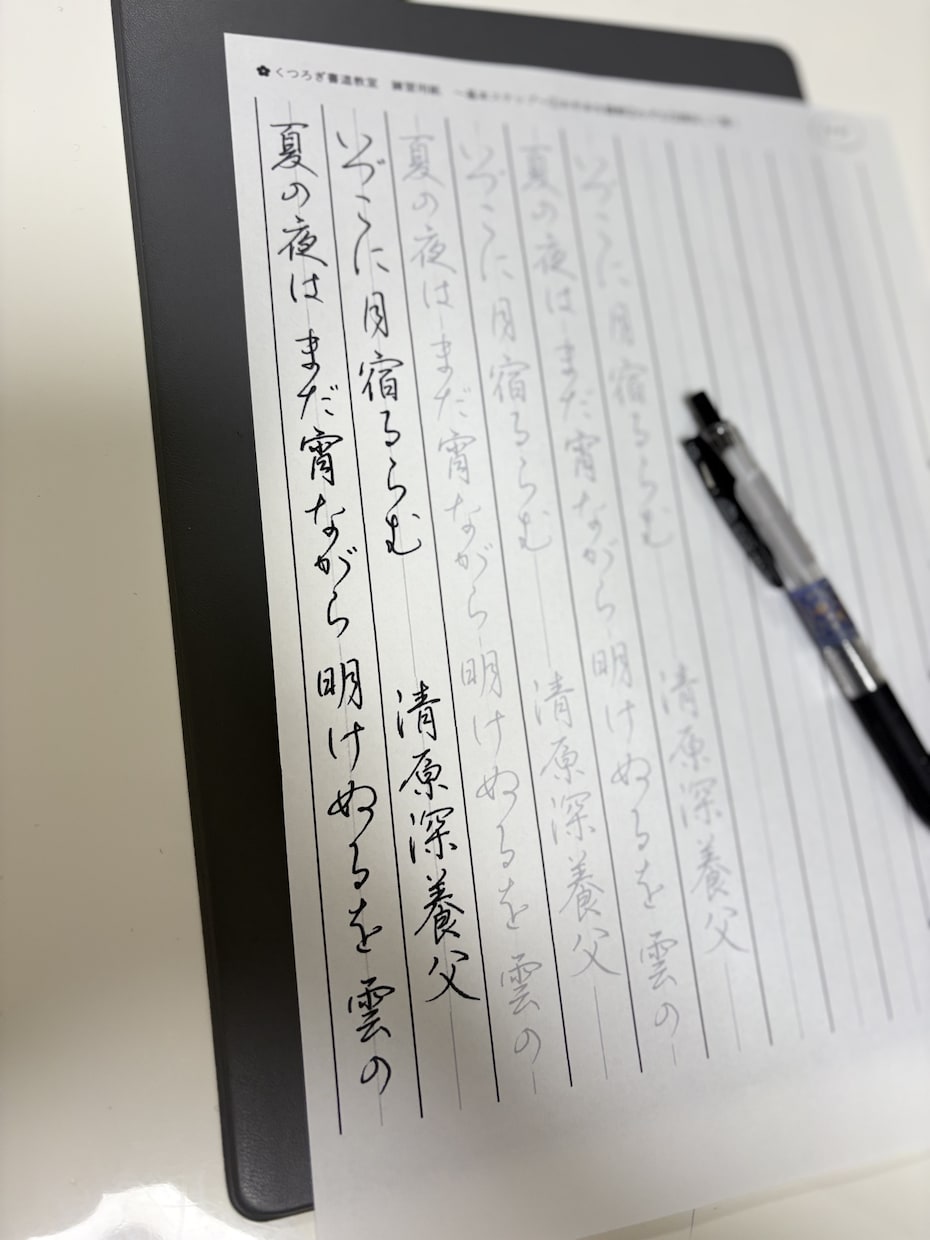 くつろぎ書道教室 練習用紙
夏の夜は まだ宵ながら 明けぬるを 雲の
いづこに 月宿るらむ 清原深養父
夏の夜は まだ宵ながら 明けぬるを 雲の
いづこに 月宿るらむ 清原深養父
夏の夜は まだ宵ながら 明けぬるを 雲の
いづこに 月宿るらむ 清原深養父